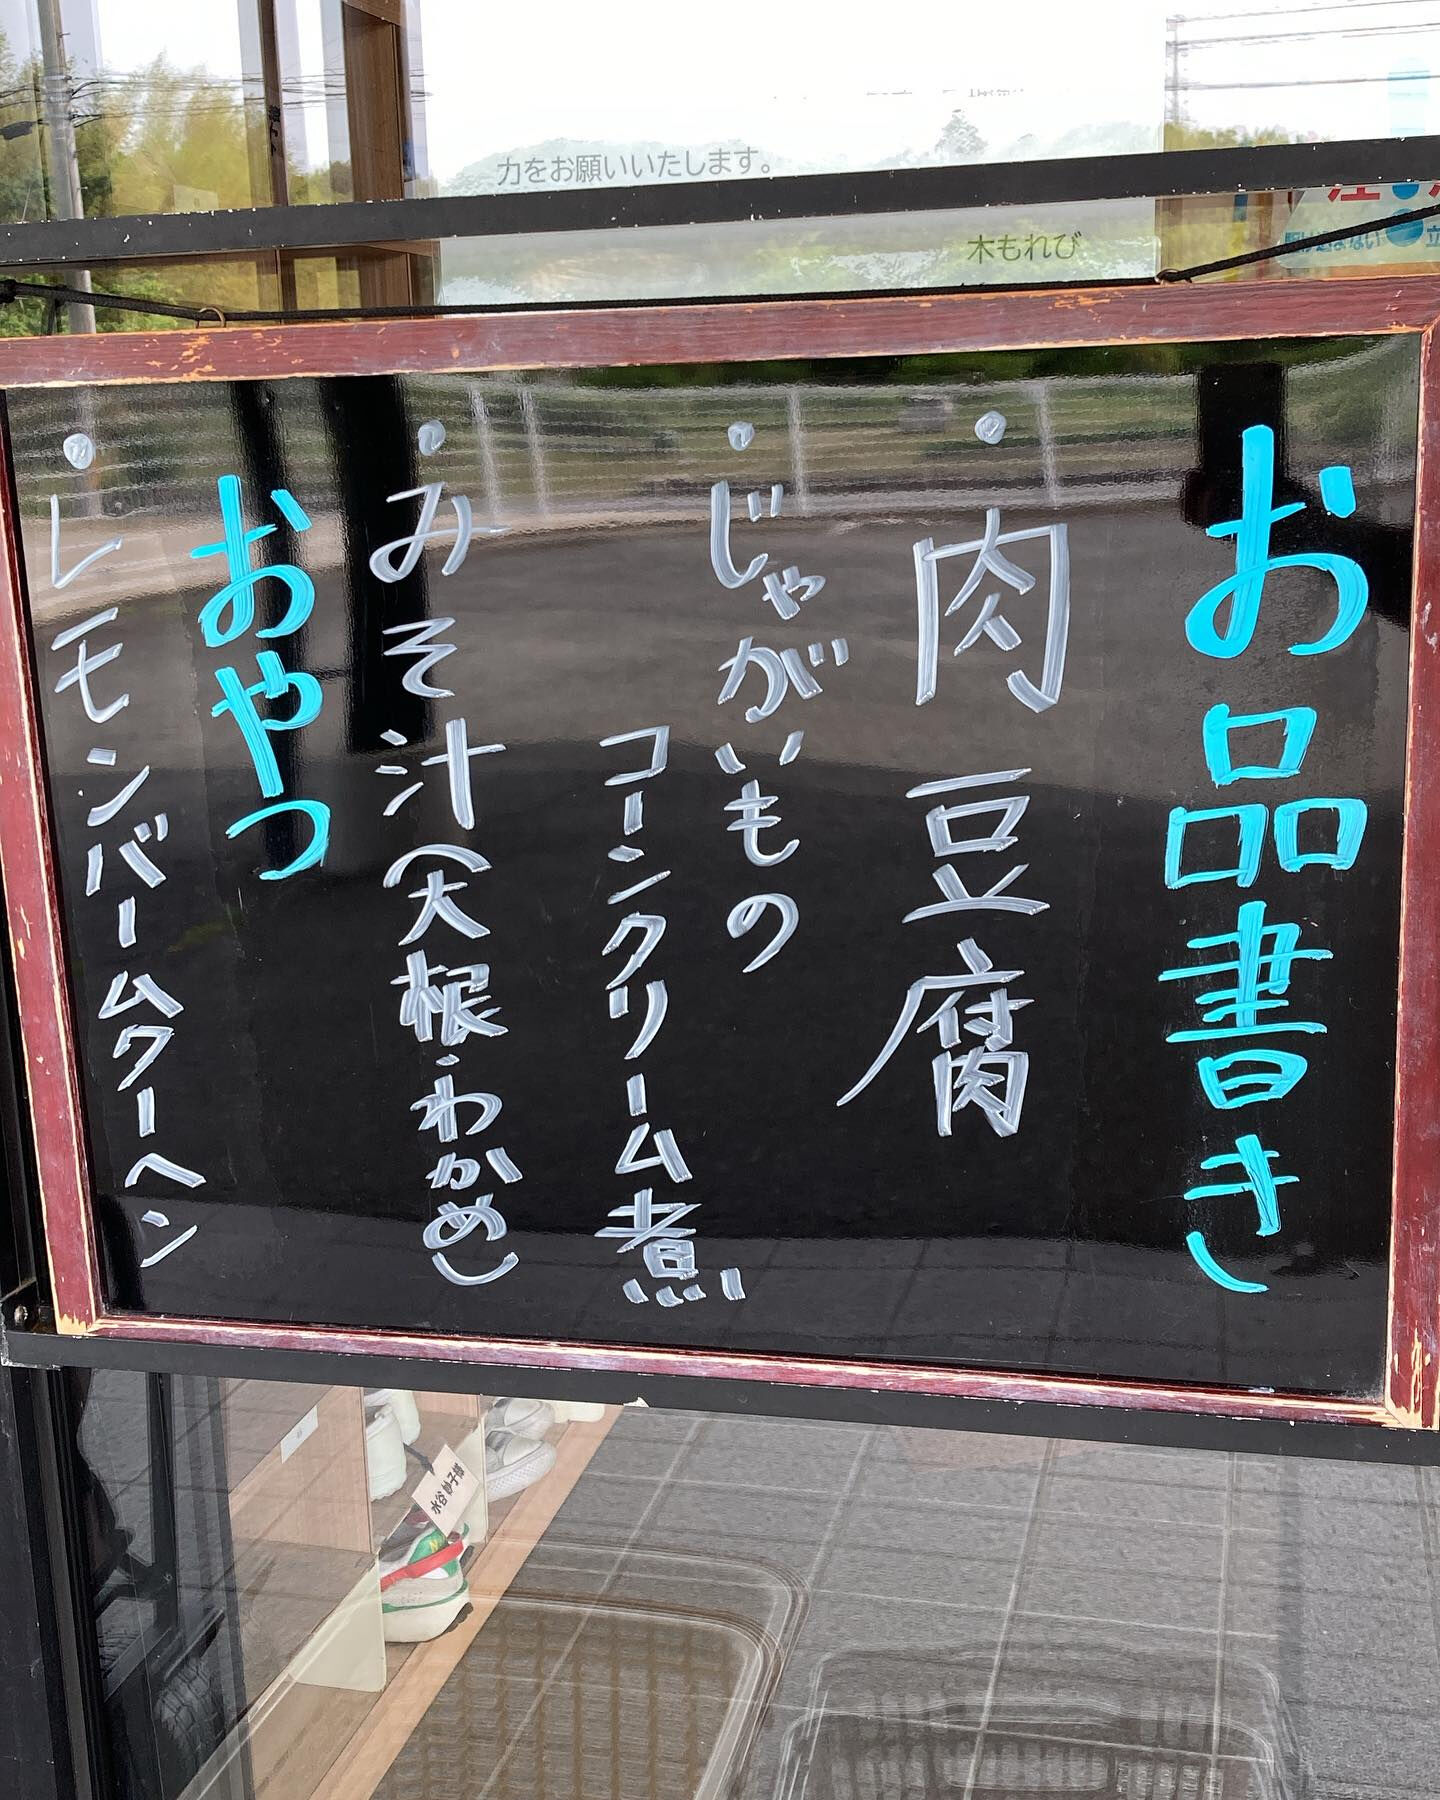 力をお願いいたします。
木もれび
お品書き
・肉豆腐
・じゃがいもの
コーンクリーム煮
・みそ汁(大根・わかめ)
おやつ
・レモンバームクーヘン